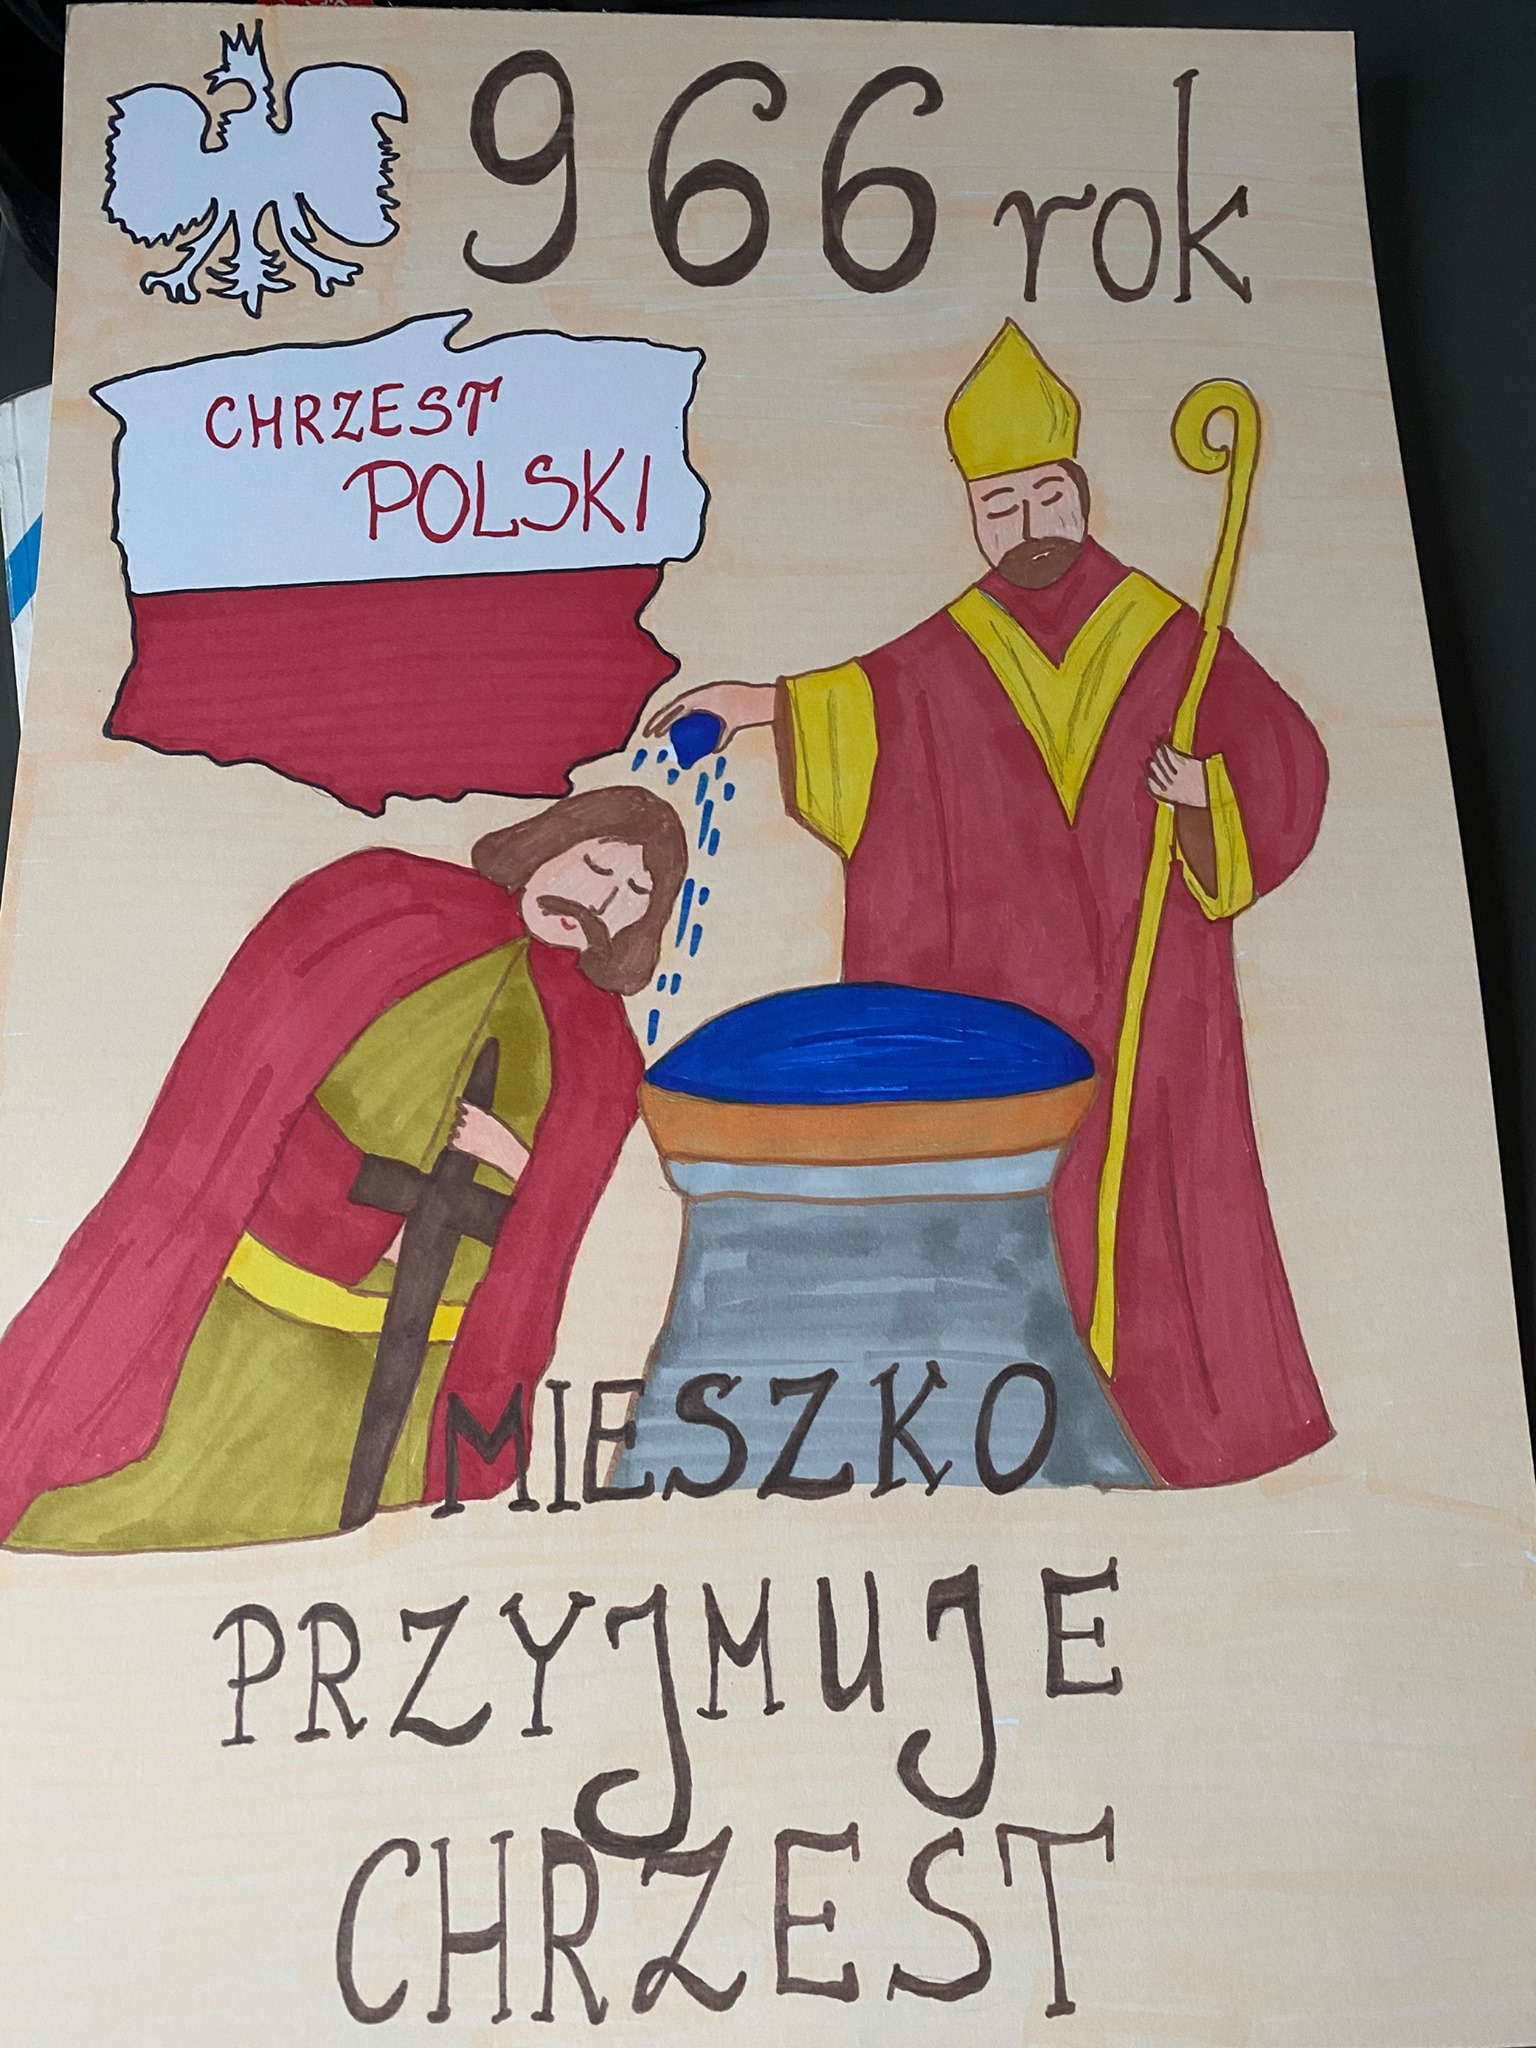 966 rok
CHRZEST
POLSKI
MIESZKO
PRZYJMUJE
CHRZEST